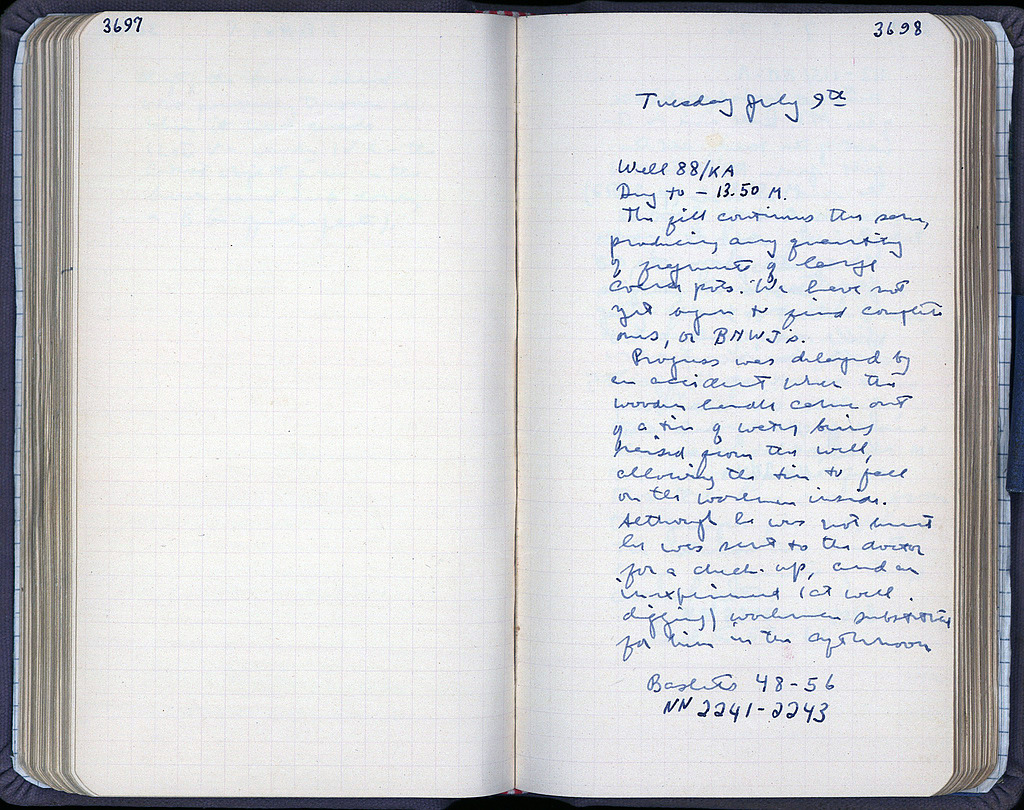 3697
3698
Tuesday July 9th
Well 88/KA
Dug to - 13.50 M.
The fill continues the same,
producing any quantity
of fragments of large
coarse pots. We have not
yet begun to find complete
ones, or BNWJ's.
Progress was delayed by
an accident when the
wooden handle came out
of a tin of water being
raised from the well,
allowing the tin to fall
on the workman inside.
Although he was not hurt
he was sent to the doctor
for a check-up, and an
inexperienced (at well
digging) workman substituted
for him in the afternoon
Baskets 48-56
NN 2241-2243